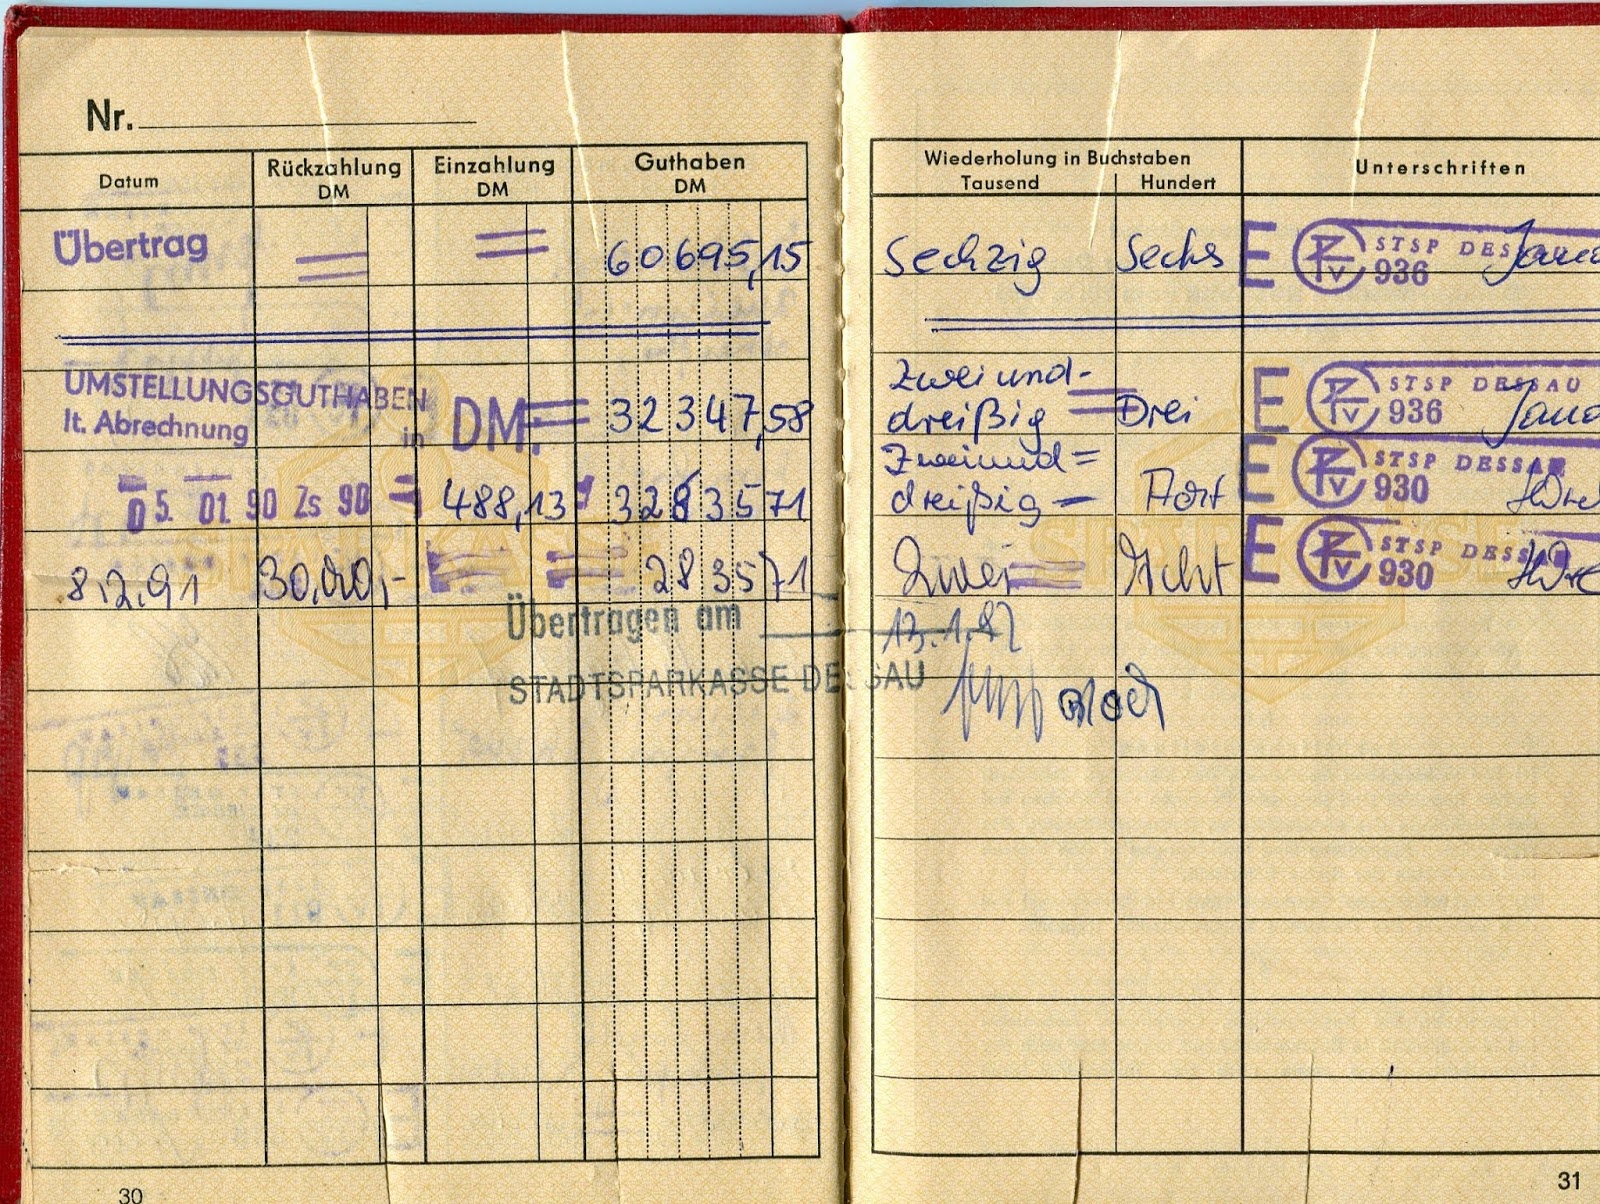 Nr.
Datum Rückzahlung DM Einzahlung DM Guthaben DM Wiederholung in Buchstaben Tausend Hundert Unterschriften
Übertrag 60695,15 Sechzig Sechs E STSP DESSAU 936
UMSTELLUNGSGUTHABEN lt. Abrechnung in DM: 32347,58 Zweiund-dreißig Drei E STSP DESSAU 936
05. 01. 90 Zs 90 488,13 32835 71 Zweiund=dreißig Acht E STSP DESSAU 930
8.2.91 30.000,- 2835 71 Zwei Acht E STSP DESSAU 930
Übertragen am
STADTSPARKASSE DESSAU
SPARKASSE SPARKASSE
30
31